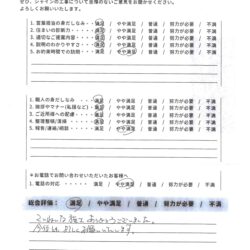 ぜひ、シャインの工事について率直のないご意見をお聞かせください。
よろしくお願いいたします。
1. 営業担当の身だしなみ・・・満足 / やや満足 / 普通 / 努力が必要 / 不満
2. 住まいの診断力・・・満足 / やや満足 / 普通 / 努力が必要 / 不満
3. 適切なご提案内容・・・満足 / やや満足 / 普通 / 努力が必要 / 不満
4. 説明のわかりやすさ・・・満足 / やや満足 / 普通 / 努力が必要 / 不満
5. お約束時間での訪問・・・満足 / やや満足 / 普通 / 努力が必要 / 不満
1. 職人の身だしなみ・・・満足 / やや満足 / 普通 / 努力が必要 / 不満
2. 挨拶やマナー(礼儀など)・・満足 / やや満足 / 普通 / 努力が必要 / 不満
3. ご近所様への配慮・・・満足 / やや満足 / 普通 / 努力が必要 / 不満
4. 整理整頓/清掃・・・満足 / やや満足 / 普通 / 努力が必要 / 不満
5. 報告/連絡/相談・・・満足 / やや満足 / 普通 / 努力が必要 / 不満
*お電話でお問い合わせいただいたお客様へ
1. 電話の対応・・・満足 / やや満足 / 普通 / 努力が必要 / 不満
総合評価： 満足 / やや満足 / 普通 / 努力が必要 / 不満
ありがとうございました。
今後も よろしくお願いいたします。